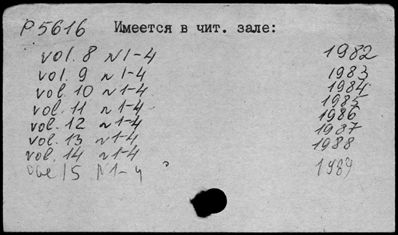 P5616 Имеется в чит. зале:
vol. 8 N1-4 1982
vol. 9 N1-4 1983
vol. 10 N1-4 1984
vol. 11 N1-4 1985
vol. 12 N1-4 1986
vol. 13 N1-4 1987
vol. 14 N1-4 1988
15 N1-4 1989